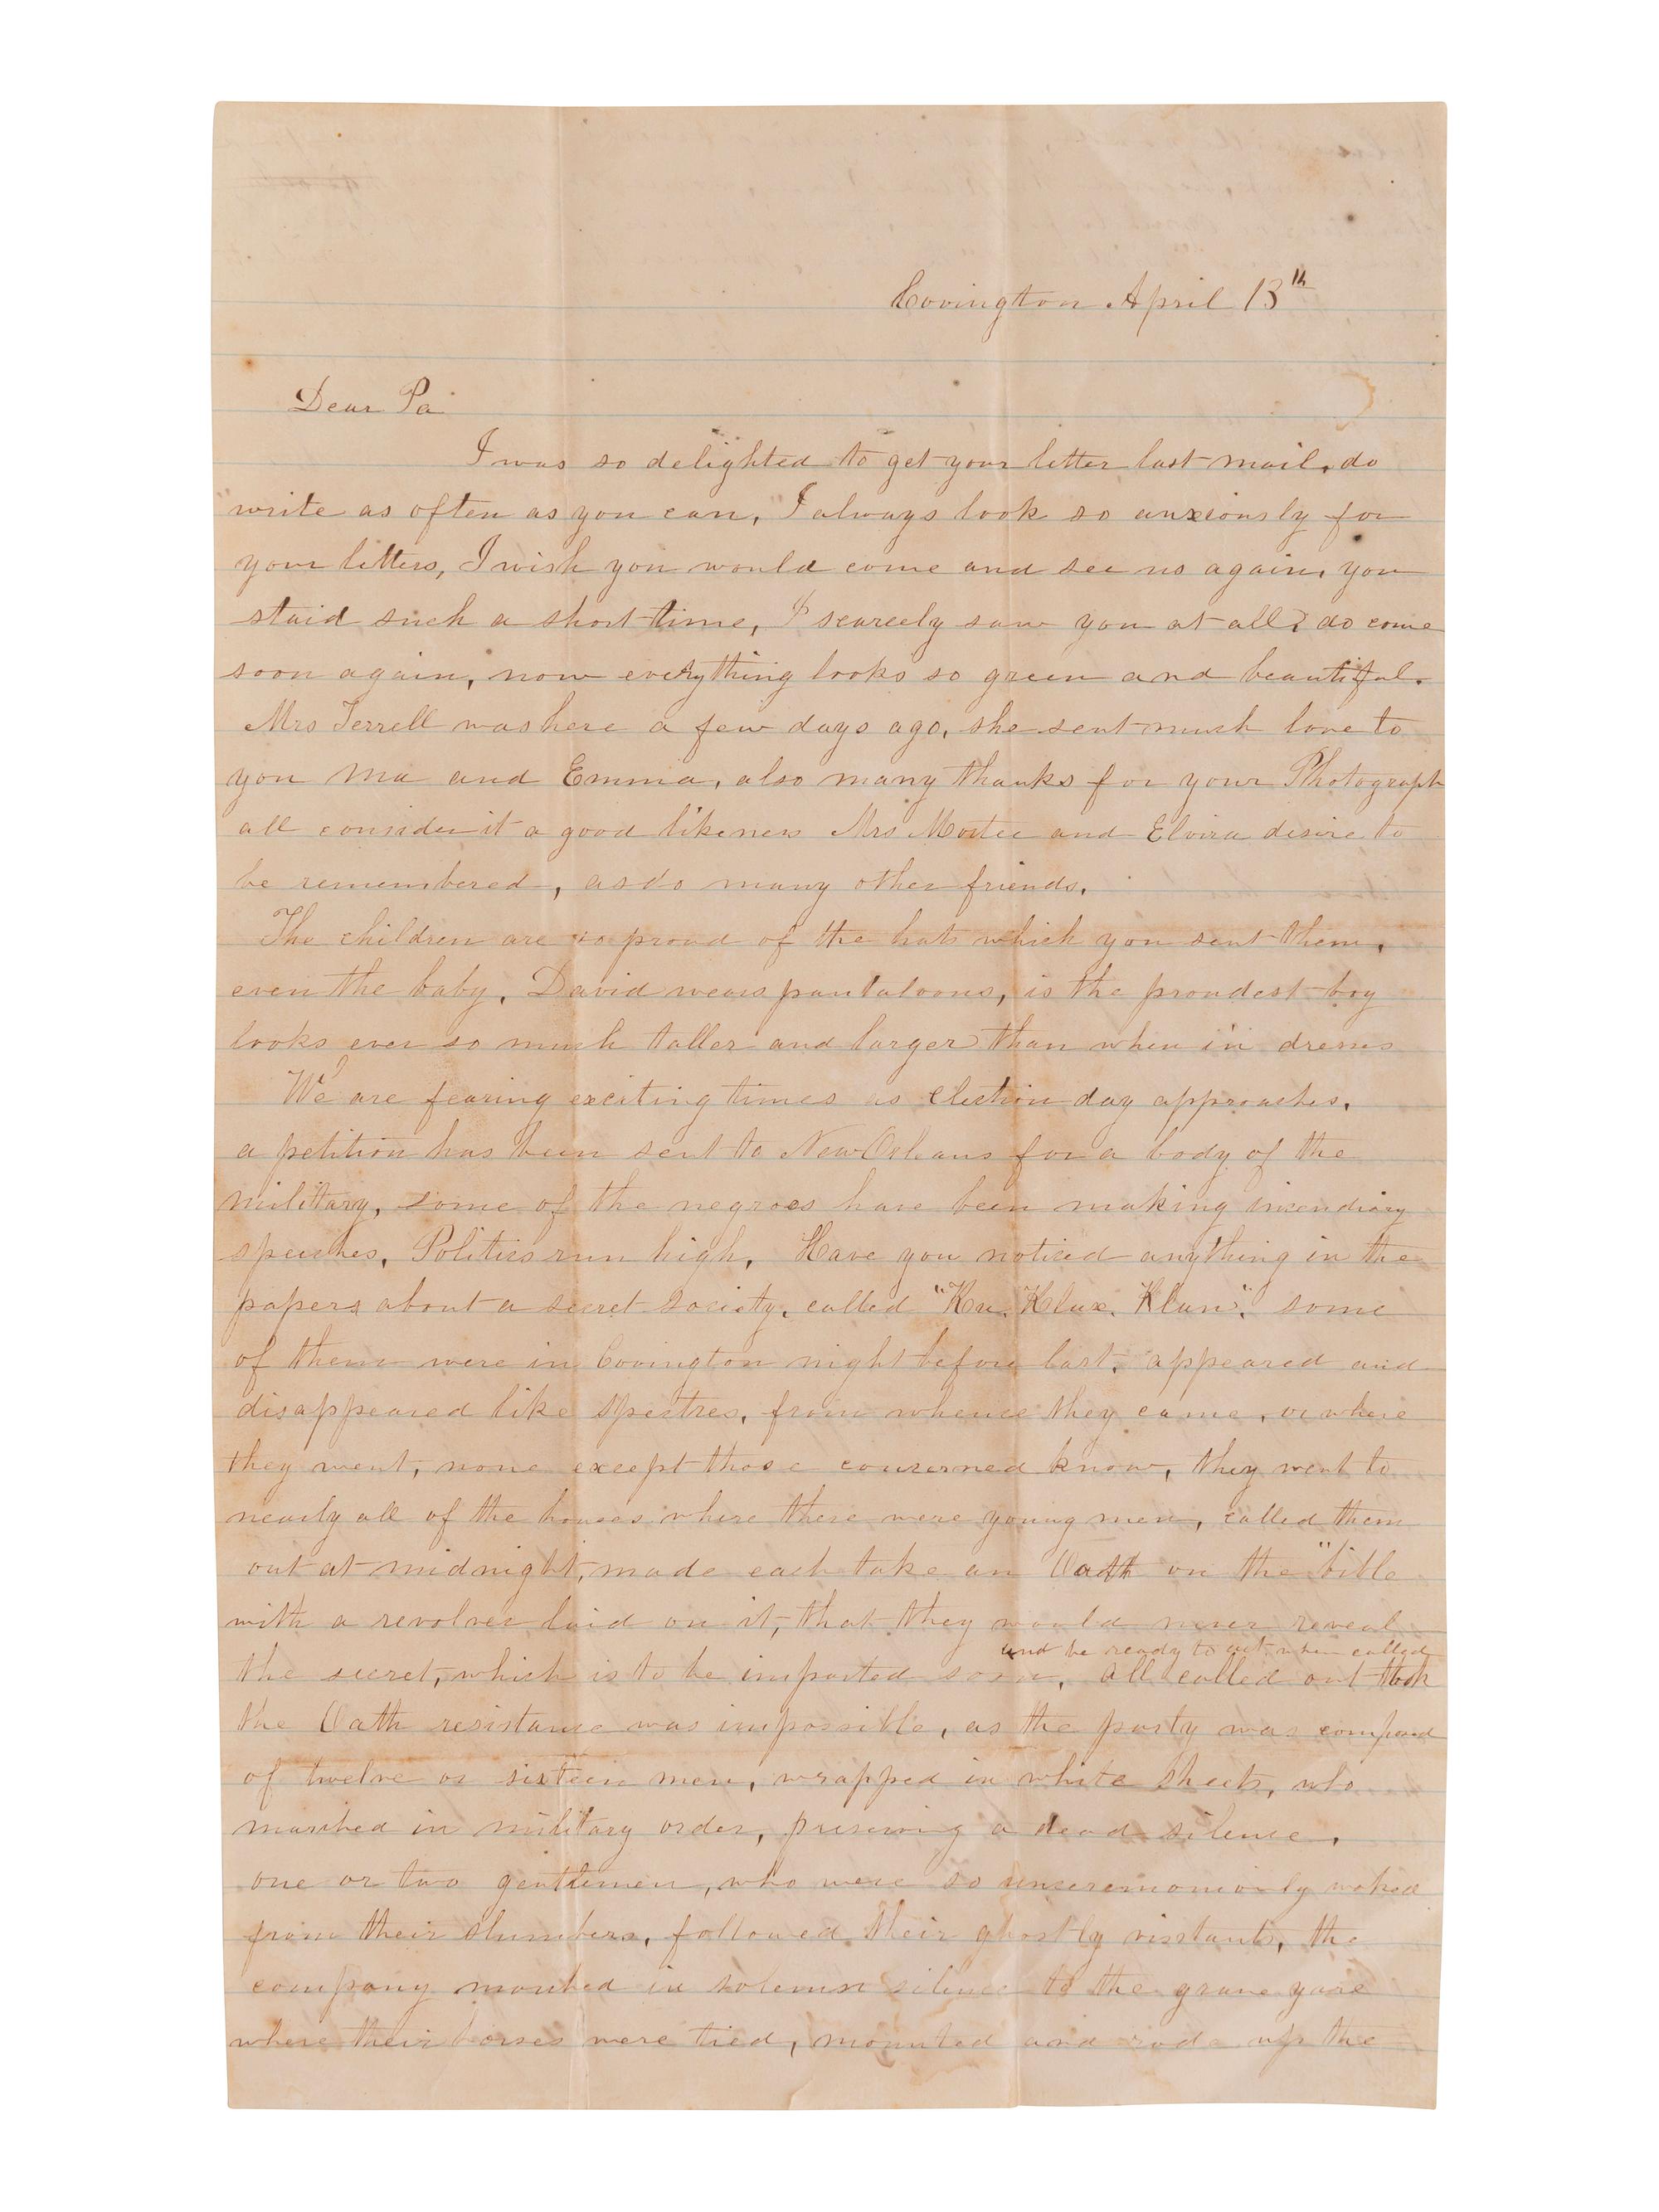 Covington April 13th
Dear Pa
I was so delighted to get your letter last mail, do
write as often as you can, I always look so anxiously for
your letters, I wish you would come and see us again, you
staid such a short time, I scarcely saw you at all, do come
soon again, now everything looks so green and beautiful.
Mrs Terrell was here a few days ago, she sent much love to
you Ma and Emma, also many thanks for your Photograph
all consider it a good likeness Mrs and Elvira desire to
be remembered, as do many other friends.
The children are so proud of the hats which you sent them,
even the baby, David wears pantaloons, is the proudest boy
looks ever so much taller and larger than when in dresses
We are fearing exciting times as election day approaches,
a petition has been sent to New Orleans for a body of the
military, some of the negroes have been making incendiary
speeches, Politics run high, Have you noticed anything in the
papers about a secret Society, called "Ku. Klux. Klan". some
of them were in Covington night before last, appeared and
disappeared like spectres, from whence they came, or where
they went, none except those concerned know, they went to
nearly all of the houses where there were young men, called them
out at midnight, made each take an Oath on the "bible
with a revolver laid on it, that they would never reveal
and be ready to act when called
the secret, which is to be imparted soon, all called out took
the Oath resistance was impossible, as the party was composed
of twelve or sixteen men, wrapped in white sheets, who
marched in military order, preserving a dead silence,
one or two gentlemen, who were so unceremoniously waked
from their slumbers, followed their ghostly visitants, the
company marched in solemn silence to the grave yard
where their horses were tied, mounted and rode up the